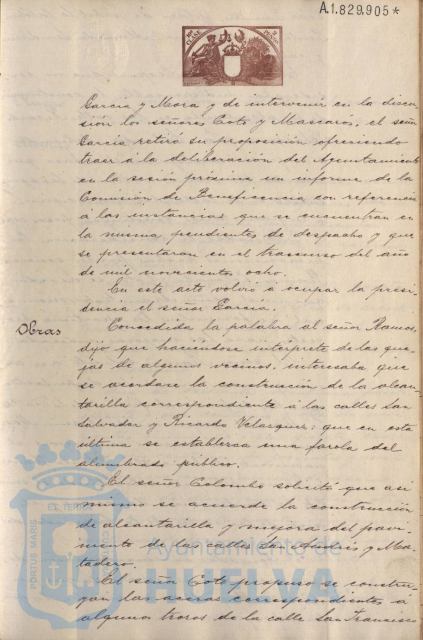 A.1.829.905*
García y Mora y de intervenir en la discu-
sión los señores Coto y Mascarós, el señor
García retiró su proposición ofreciendo
traer á la deliberación del Ayuntamiento
en la sesión próxima un informe de la
Comisión de Beneficencia con referencia
á las instancias que se encuentran en
la misma pendientes de despacho y que
se presentaran en el trascurso del año
de mil novecientos ocho.
En este acto volvió á ocupar la presi-
dencia el señor García.
Obras
Concedida la palabra al señor Ramos,
dijo que haciéndose intérprete de las que-
jas de algunos vecinos, interesaba que
se acordase la construcción de la alcan-
tarilla correspondiente á las calles San
Salvador y Ricardo Velazquez; que en esta
última se establezca una farola del
alumbrado público.
El señor Colombo solicitó que asi
mismo se acuerde la construcción
de alcantarilla y mejora del pavi-
mento de las calles San y Ma-
tadero.
El señor Coto propuso se constru-
yan las aceras correspondientes á
algunos trozos de la calle San Francisco
PORTUS MARIS
Ayuntamiento de
HUELVA